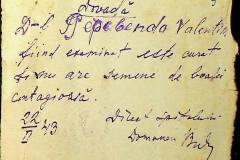 Dovadă
D-l Valentin
fiind examinat este curat
și nu are semne de boală
contagioasă.
22/II 43
Direct. spitalului